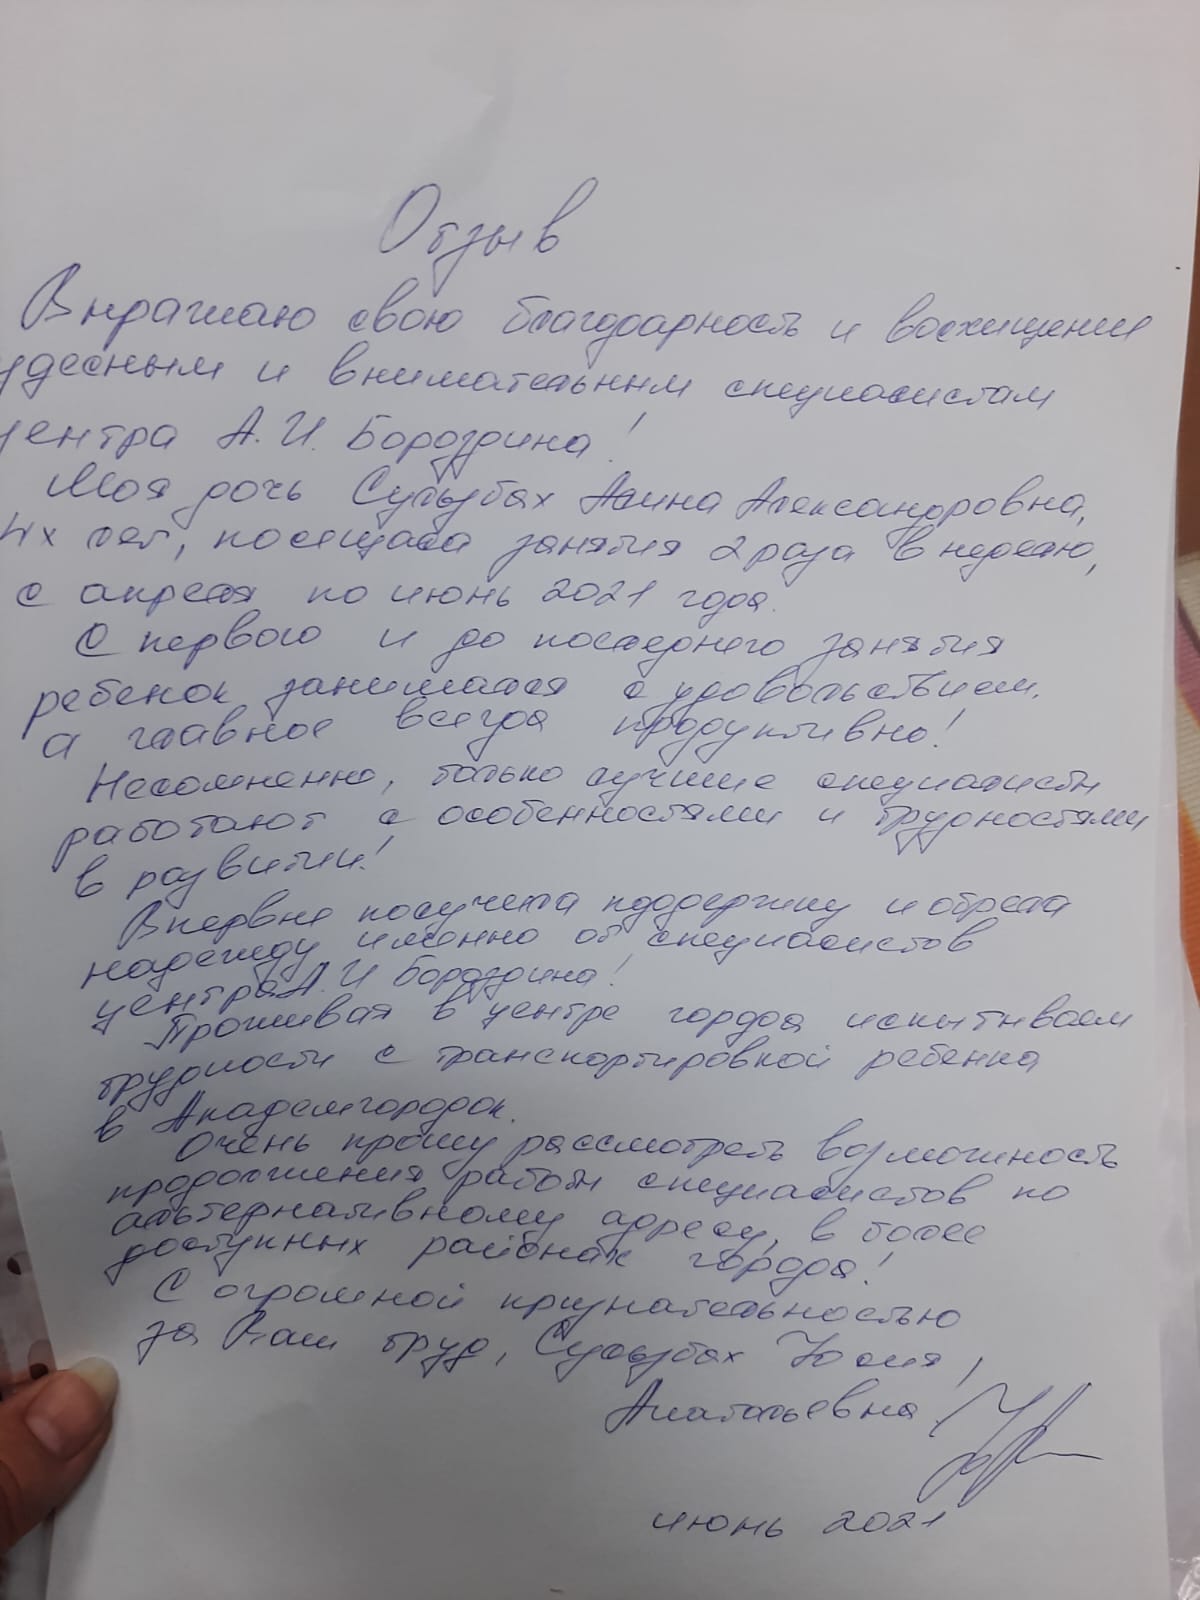 Отзыв
Выражаю свою благодарность и восхищение
чудесным и внимательным специалистам
центра А.И. Бороздина!
Моя дочь Алина Александровна,
4х лет, посещала занятия 2 раза в неделю,
с апреля по июнь 2021 года.
С первого и до последнего занятия
ребенок занимался с удовольствием,
а главное всегда продуктивно!
Несомненно, только лучшие специалисты
работают с особенностями и трудностями
в развитии!
Впервые получила поддержку и обрела
надежду именно от специалистов
центра А.И Бороздина!
Проживая в центре города испытываем
трудности с транспортировкой ребенка
в Академгородок.
Очень прошу рассмотреть возможность
продолжения работы специалистов по
альтернативному адресу, в более
доступных районах города!
С огромной признательностью
за Ваш труд, Юлия
Анатольевна
июнь 2021